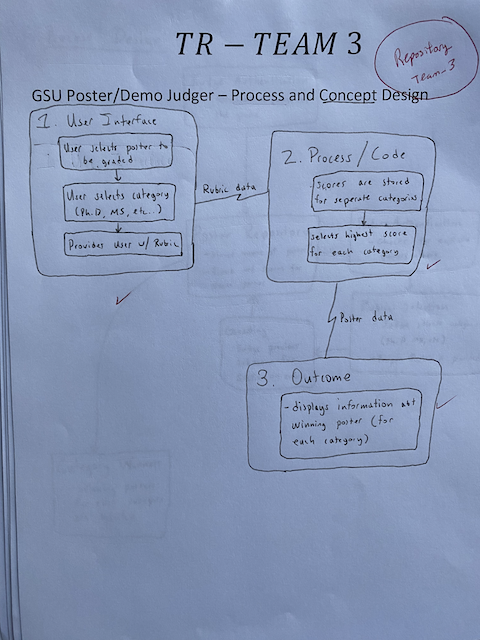 TR – TEAM 3
Repository
Team-3
GSU Poster/Demo Judger – Process and Concept Design
1. User Interface
User selects poster to
be graded
User selects category
(Ph.D, MS, etc...)
Provides User w/ Rubric
Rubric data
2. Process / Code
Scores are stored
for seperate categories
selects highest score
for each category
Poster data
3. Outcome
- displays information abt
winning poster (for
each category)